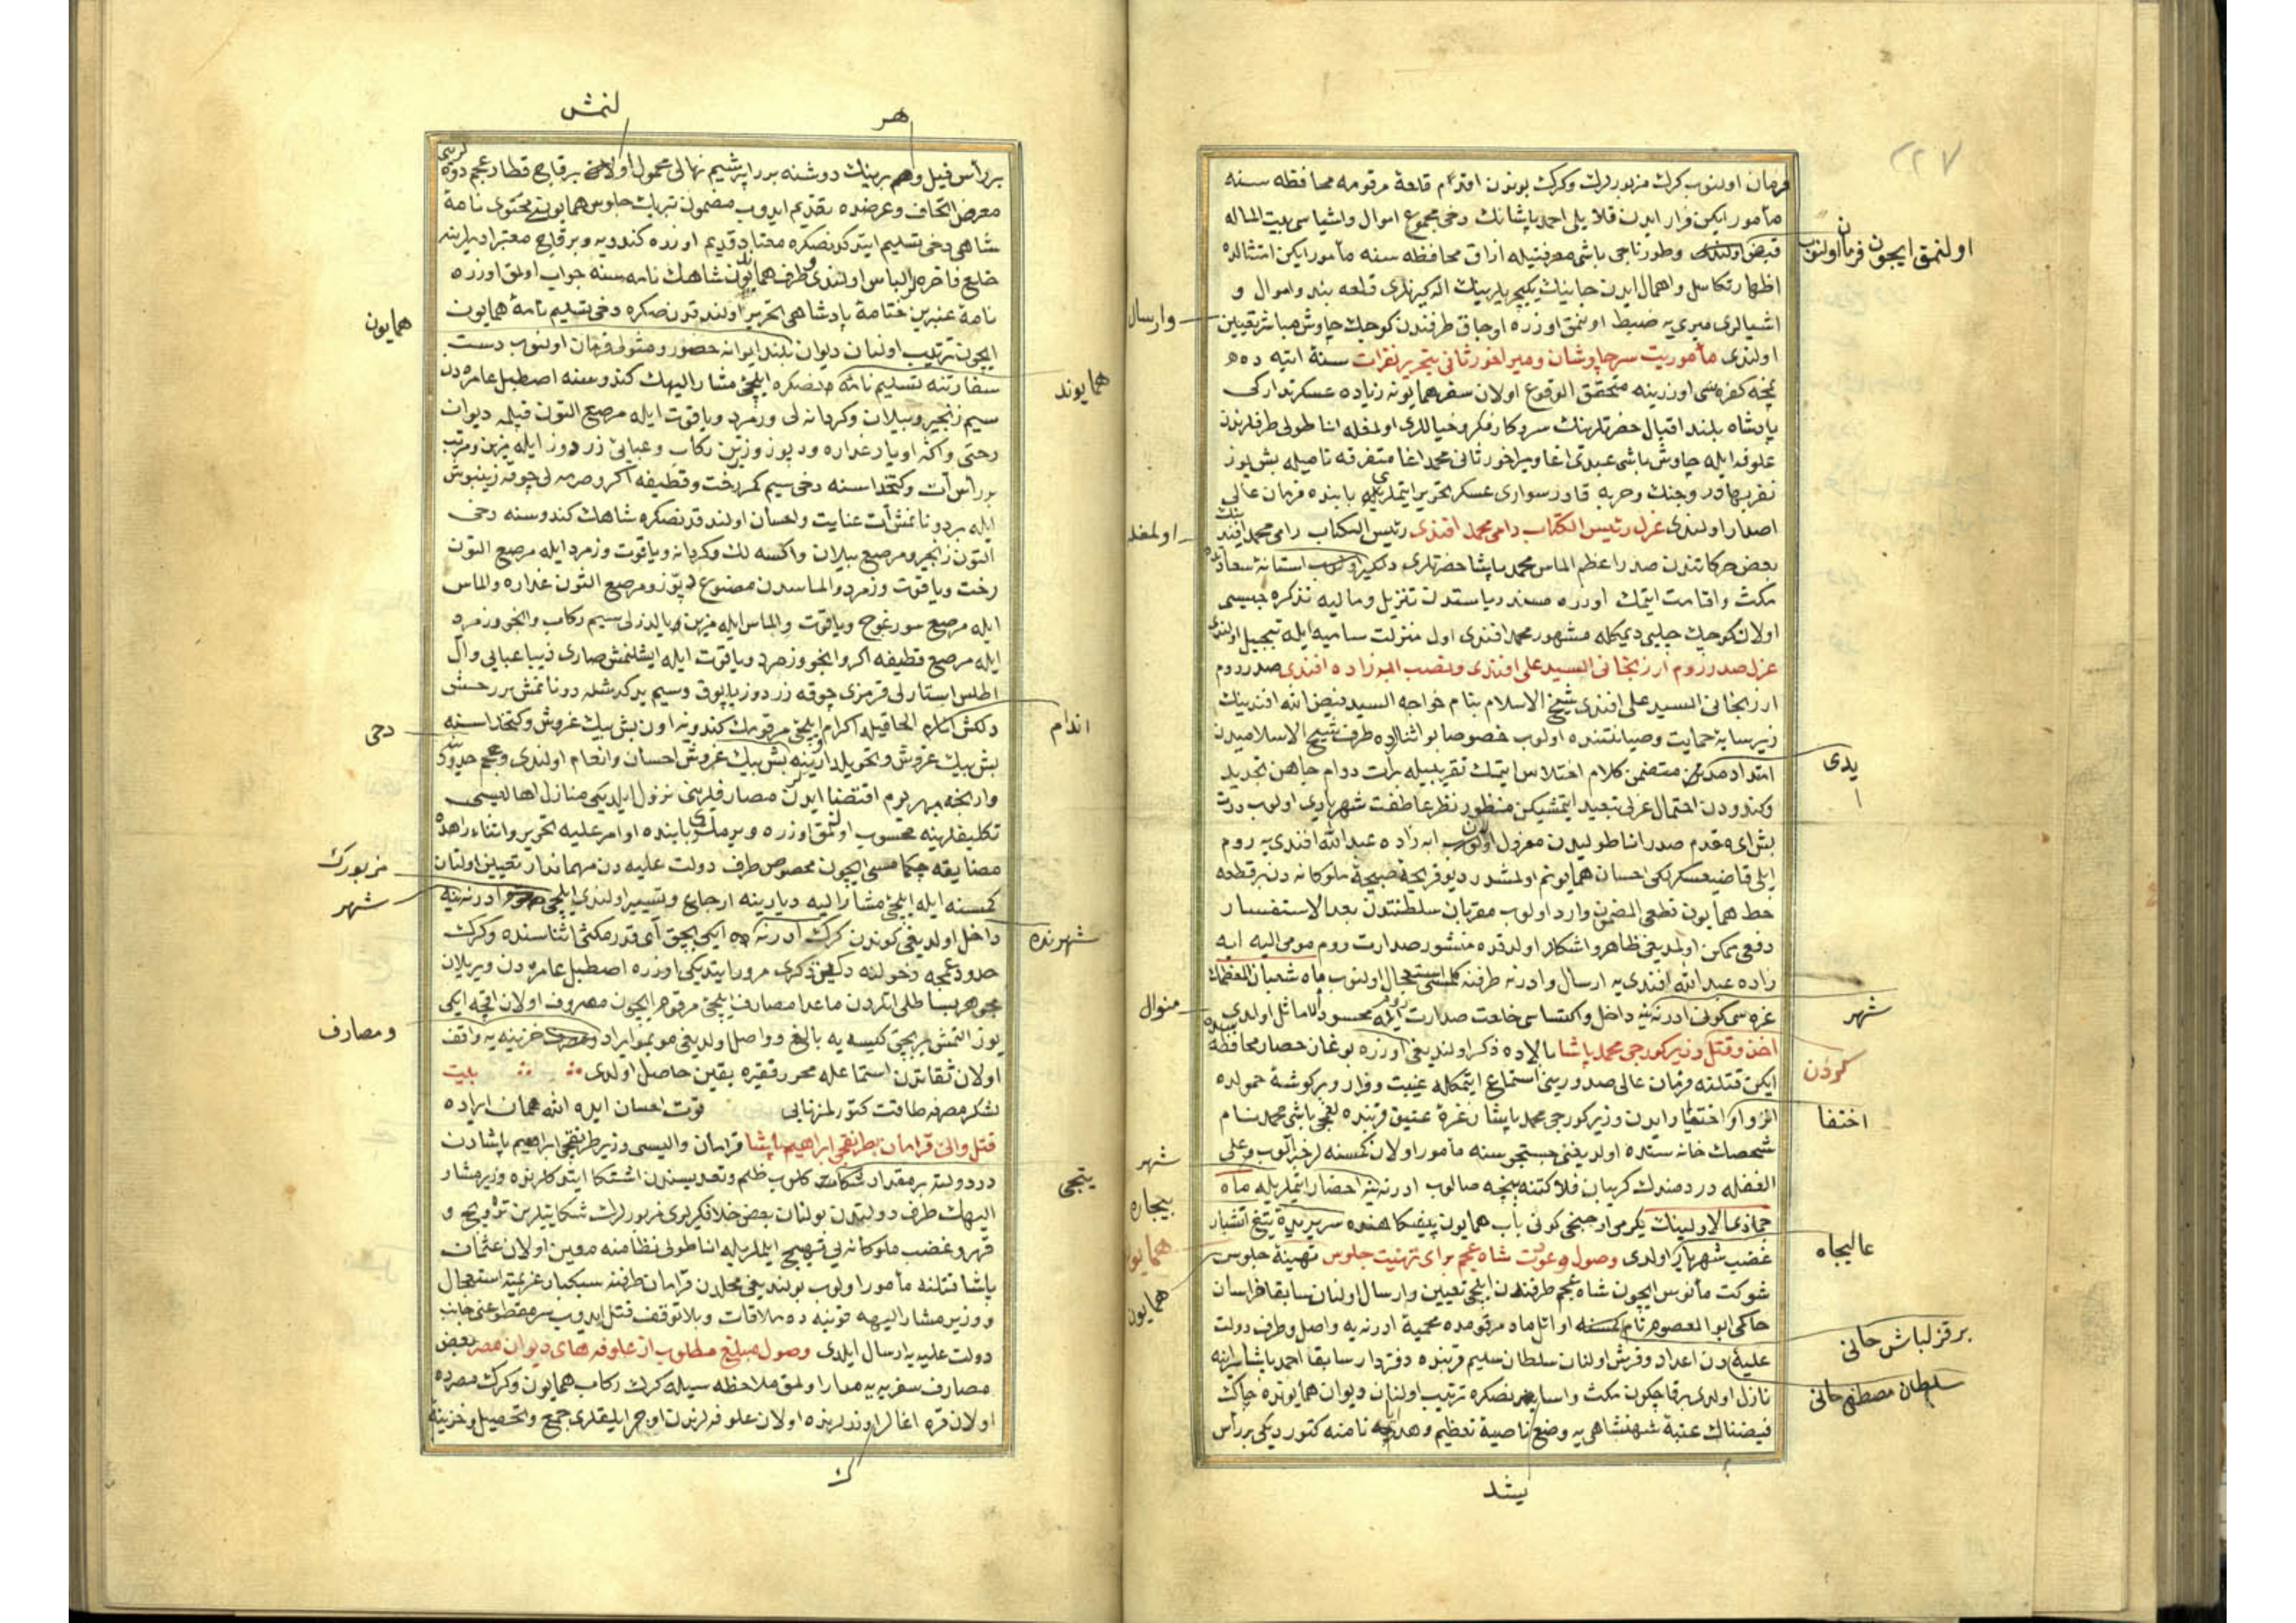 ٢٢٧
فرمان اولنوب كرك مزبورلرك وكرك بوندن اقدم قلعهٔ مرقومه محافظه سنه
مأمور ايكن فرار ايدن قلايلى احمد پاشانك دخى مجموع اموال واشياسى بيت الماله
قبض اولندى وطورناجى باشى معرفتيله ازاق محافظه سنه مأمور ايكن امتثالده
اولنمق ايچون فرمان اولنوب
اظهار تكاسل واهمال ايدن جانبنك يكيچريلرينك الدكيرنلرى قلعه بند واموال و
اشيالرى ميرى يه ضبط اولنمق اوزره اوجاق طرفندن كوچك چاوش مباشر تعيين
وارسال
اولندى مأموريت سرچاوشان وميراخور ثانى بتحرير نفرات سنهٔ اتيه ده
پنجه كفره سى اوزرينه متحقق الوقوع اولان سفر همايونه زياده عسكر تداركى
پادشاه بلند اقبال حضرتلرينك سروكار فكر وخياللرى اولمغله اناطولى طرفلرندن
علوفه ايله چاوش باشى عبدى اغا وميراخور ثانى محمد اغا متفرقه ناصيله بش يوز
نفر بهادر وجنك وحربه قادر سوارى عسكر تحرير ايتملريچون بابنده فرمان عالى
اصدار اولندى عزل رئيس الكتاب رامى محمد افندى رئيس الكتاب رامى محمد افندينك
اولمغله
بعض حركاتندن صدراعظم الماس محمد پاشا حضرتلرى دلكير اولوب استانهٔ سعادتده
مكث واقامت ايتمك اوزره مسند رياستدن تنزيل وماليه تذكره جيسى
اولان كوچك چلبى ديمكله مشهور محمد افندى اول منزلت ساميه ايله تبجيل اولندى
عزل صدر روم ارزنجانى السيد على افندى ونصب ابه زاده افندى صدر روم
ارزنجانى السيد على افندى شيخ الاسلام بنام خواجه السيد فيض الله افندينك
زير سايهٔ حمايت وصيانتنده اولوب خصوصا بو اثنالرده طرف شيخ الاسلاميدن
امتداد مدتى متضمن كلام اختلاس ايتمك تقريبيله برات دوام جاهن تجديد
يدى
وكندودن احتمال عزلى تبعيد ايتمشيكن منظور نظر عاطفت شهريارى اولوب درت
بش اى مقدم صدر اناطوليدن معزول اولان ابه زاده عبدالله افندى يه روم
ايلى قاضيعسكرلكى احسان همايونم اولمشدر ديو قريحهٔ صبيحهٔ ملوكانه دن برقطعه
خط همايون قطعى المضمون وارد اولوب مقربان سلطنتدن بعد الاستفسار
دفعى ممكن اولمديغى ظاهر واشكار اولدقده منشور صدارت روم مومى اليه ابه
زاده عبدالله افندى يه ارسال وادرنه طرفنه كلمسى استعجال اولنوب ماه شعبان المعظمك
شهر
غره سى كونى ادرنه يه داخل واكتساى خلعت صدارت روم ايله محسود الاماثل اولدى
منوال
اخذ وقتل وزير كورجى محمد پاشا بالاده ذكر اولنديغى اوزره بوغاز حصار محافظه سنده
ايكن قتلنه فرمان عالى صدورينى استماع ايتمكله غيبت وفرار وبركوشهٔ خموله
كردن
اختفا ايدن وزير كورجى محمد پاشا زغرهٔ عتيق قربنده لغمجى باشى محمد نام
اختفا
شخصك خانه سنده اولديغنى جستجوسنه مأمور اولان كمسنه لر خبر آلوب وعلى
شهر
الغفله دردمندك كريبان فلاكتنه پنچه صالوب ادرنه يه احضار ايتملريله ماه
بيچاره
جماذى الاولينك يكرمى اوچنجى كونى باب همايون پيشكاهنده سربريدهٔ تيغ آتشبار
غضب شهريارى اولدى وصول دعوت شاه عجم براى تهنيت جلوس تهنيهٔ جلوس
عاليجاه
همايون
شوكت مأنوس ايچون شاه عجم طرفندن ايلچى تعيين وارسال اولنان سابقا خراسان
همايون
حاكمى ابوالمعصوم نام كمسنه اوائل ماه مرقومده محميهٔ ادرنه يه واصل وطرف دولت
بر قزلباش خانى
عليه دن اعداد وفرش اولنان سلطان سليم قربنده دفتردار سابقا احمد پاشا سراينه
سلطان مصطفى خانى
نازل اولدى برقاچ كون مكث واسايشدنصكره ترتيب اولنان ديوان همايونده چاك
فيضناك عتبهٔ شهنشاهى يه وضع ناصيهٔ تعظيم وهديه نامنه كتورديكى بررأس
يشد
هر
لنمش
بررأس فيل وهر برينك دوشنه برر ابريشيم نهالى محمول اولنمش برقاچ قطار عجم دوه لرينى
معرض اتحاف وعرضده تقديم ايدوب مضمون تبريك جلوس همايونى محتوى نامهٔ
شاهى دخى تسليم ايتدكدنصكره معتاد قديم اوزره كندويه وبرقاچ معتبر ادملرينه
خلع فاخره لر الباس اولندى وطرف همايوندن شاهك نامه سنه جواب اولمق اوزره
نامهٔ عنبرين ختامهٔ پادشاهى تحرير اولندقدن صكره دخى تسليم نامهٔ همايون
همايون
ايچون ترتيب اولنان ديوان بلند ايوانه حضور ومثولى فرمان اولنوب دست
سفارتنه تسليم نامه دنصكره ايلچئ مشار اليهك كندوسنه اصطبل عامره دن
همايوند
سيم زنجير وبيلان وكردانه لى وزمرد وياقوت ايله مرصع التون قپلمه ديوان
رختى واكه اويار غداره ودبوز وزرين ركاب وعبائى زردوز ايله مزين ومرتب
بررأس آت وكتخداسنه دخى سيم كمر رخت وقطيفه اكر وصرمه لى چوقه زينپوش
ايله بر دونانمش آت عنايت واحسان اولندقدنصكره شاهك كندوسنه دخى
التون زنجير ومرصع بيلان واكسه لك وكردانه وياقوت وزمرد ايله مرصع التون
رخت وياقوت وزمرد والماسدن مصنوع دبوز ومرصع التون غداره والماس
ايله مرصع سورغوج وياقوت والماس ايله مزين يالدزلى سيم ركاب وانجو وزمرد
ايله مرصع قطيفه اكر وانجو وزمرد وياقوت ايله ايشلنمش صارى ديبا عبايى وآل
اطلس استارلى قرمزى چوقه زردوز ياپوق وسيم يدكدشله دونانمش بررخش
دلكش الحاقيله اكرام وايلچئ مرقومك كندويه اون بش بيك غروش وكتخداسنه
اندام
دخى
بش بيك غروش وتحويلدارينه بش بيك غروش احسان وانعام اولندى وعجم حدودينه
وارنجه بهر يوم اقتضا ايدن مصارفلرينى نزول ايلديكى منازل اهاليسى
تكليفلرينه محسوب اولنمق اوزره ويرملرى بابنده اوامر عليه تحرير واثناء راهده
مضايقه چكمامسى ايچون مخصوص طرف دولت عليه دن مهماندار تعيين اولنان
مزبورك
كمسنه ايله ايلچئ مشار اليه ديارينه ارجاع وتسيير اولندى ايلچئ ادرنه يه
شهر
داخل اولديغى كوندن كرك ادرنه ده ايكى بچق آى قدر مكثى اثناسنده وكرك
شهرنده
حدود عجمه دخولنه دكين ذكرى مرور ايتديكى اوزره اصطبل عامره دن ويريلان
مجوهر بساطلى اتلردن ماعدا مصارف ايلچئ مرقوم ايچون مصروف اولان اقچه ايكى
ومصارف
يوز التمش بر بچق كيسه يه بالغ وواصل اولديغى موبمو ايراد خزينه يه واقف
اولان ثقاتدن استماعله محرر فقيره يقين حاصل اولدى بيت
لشكر مصرفه طاقت كتورلمز نهايى قوت احسان ايده الله همان ايراده
قتل والئ قرامان بطرنقجى ابراهيم پاشا قرامان واليسى وزير طرنقجى ابراهيم پاشادن
در دولته بر مقدار شكايتجى كلوب ظلم وتعديسندن اشتكا ايتدكلرنده وزير مشار
يتجى
اليهك طرف دولتدن بولنان بعض خلافكيرلرى مزبورلرك شكايتلرين ترويج و
قهر وغضب ملوكانه يى تهييج ايلملريله اناطولى نظامنه معين اولان عثمان
پاشا قتلنه مأمور اولوب بولنديغى محلدن قرامان طرفنه سبكبار عزيمته استعجال
ووزير مشار اليهه قونيه ده ملاقات وبلا توقف قتل ايدوب سر مقطوعنى جانب
دولت عليه يه ارسال ايلدى وصول مبلغ مطلوب از علوفه هاى ديوان مصر بعض
مصارف سفريه يه مدار اولمق ملاحظه سيله كرك ركاب همايون وكرك مصرده
اولان قره اغالر اوندلرنده اولان علوفه لرندن اوچر ايليقلرى جمع وتحصيل وخزينهٔ
ك